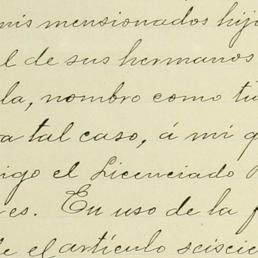 mis mencionados hij
l de sus hermanos
la, nombro como tu
a tal caso, á mi q
igo el Licenciado
es. En uso de la f
e el artículo seiscie